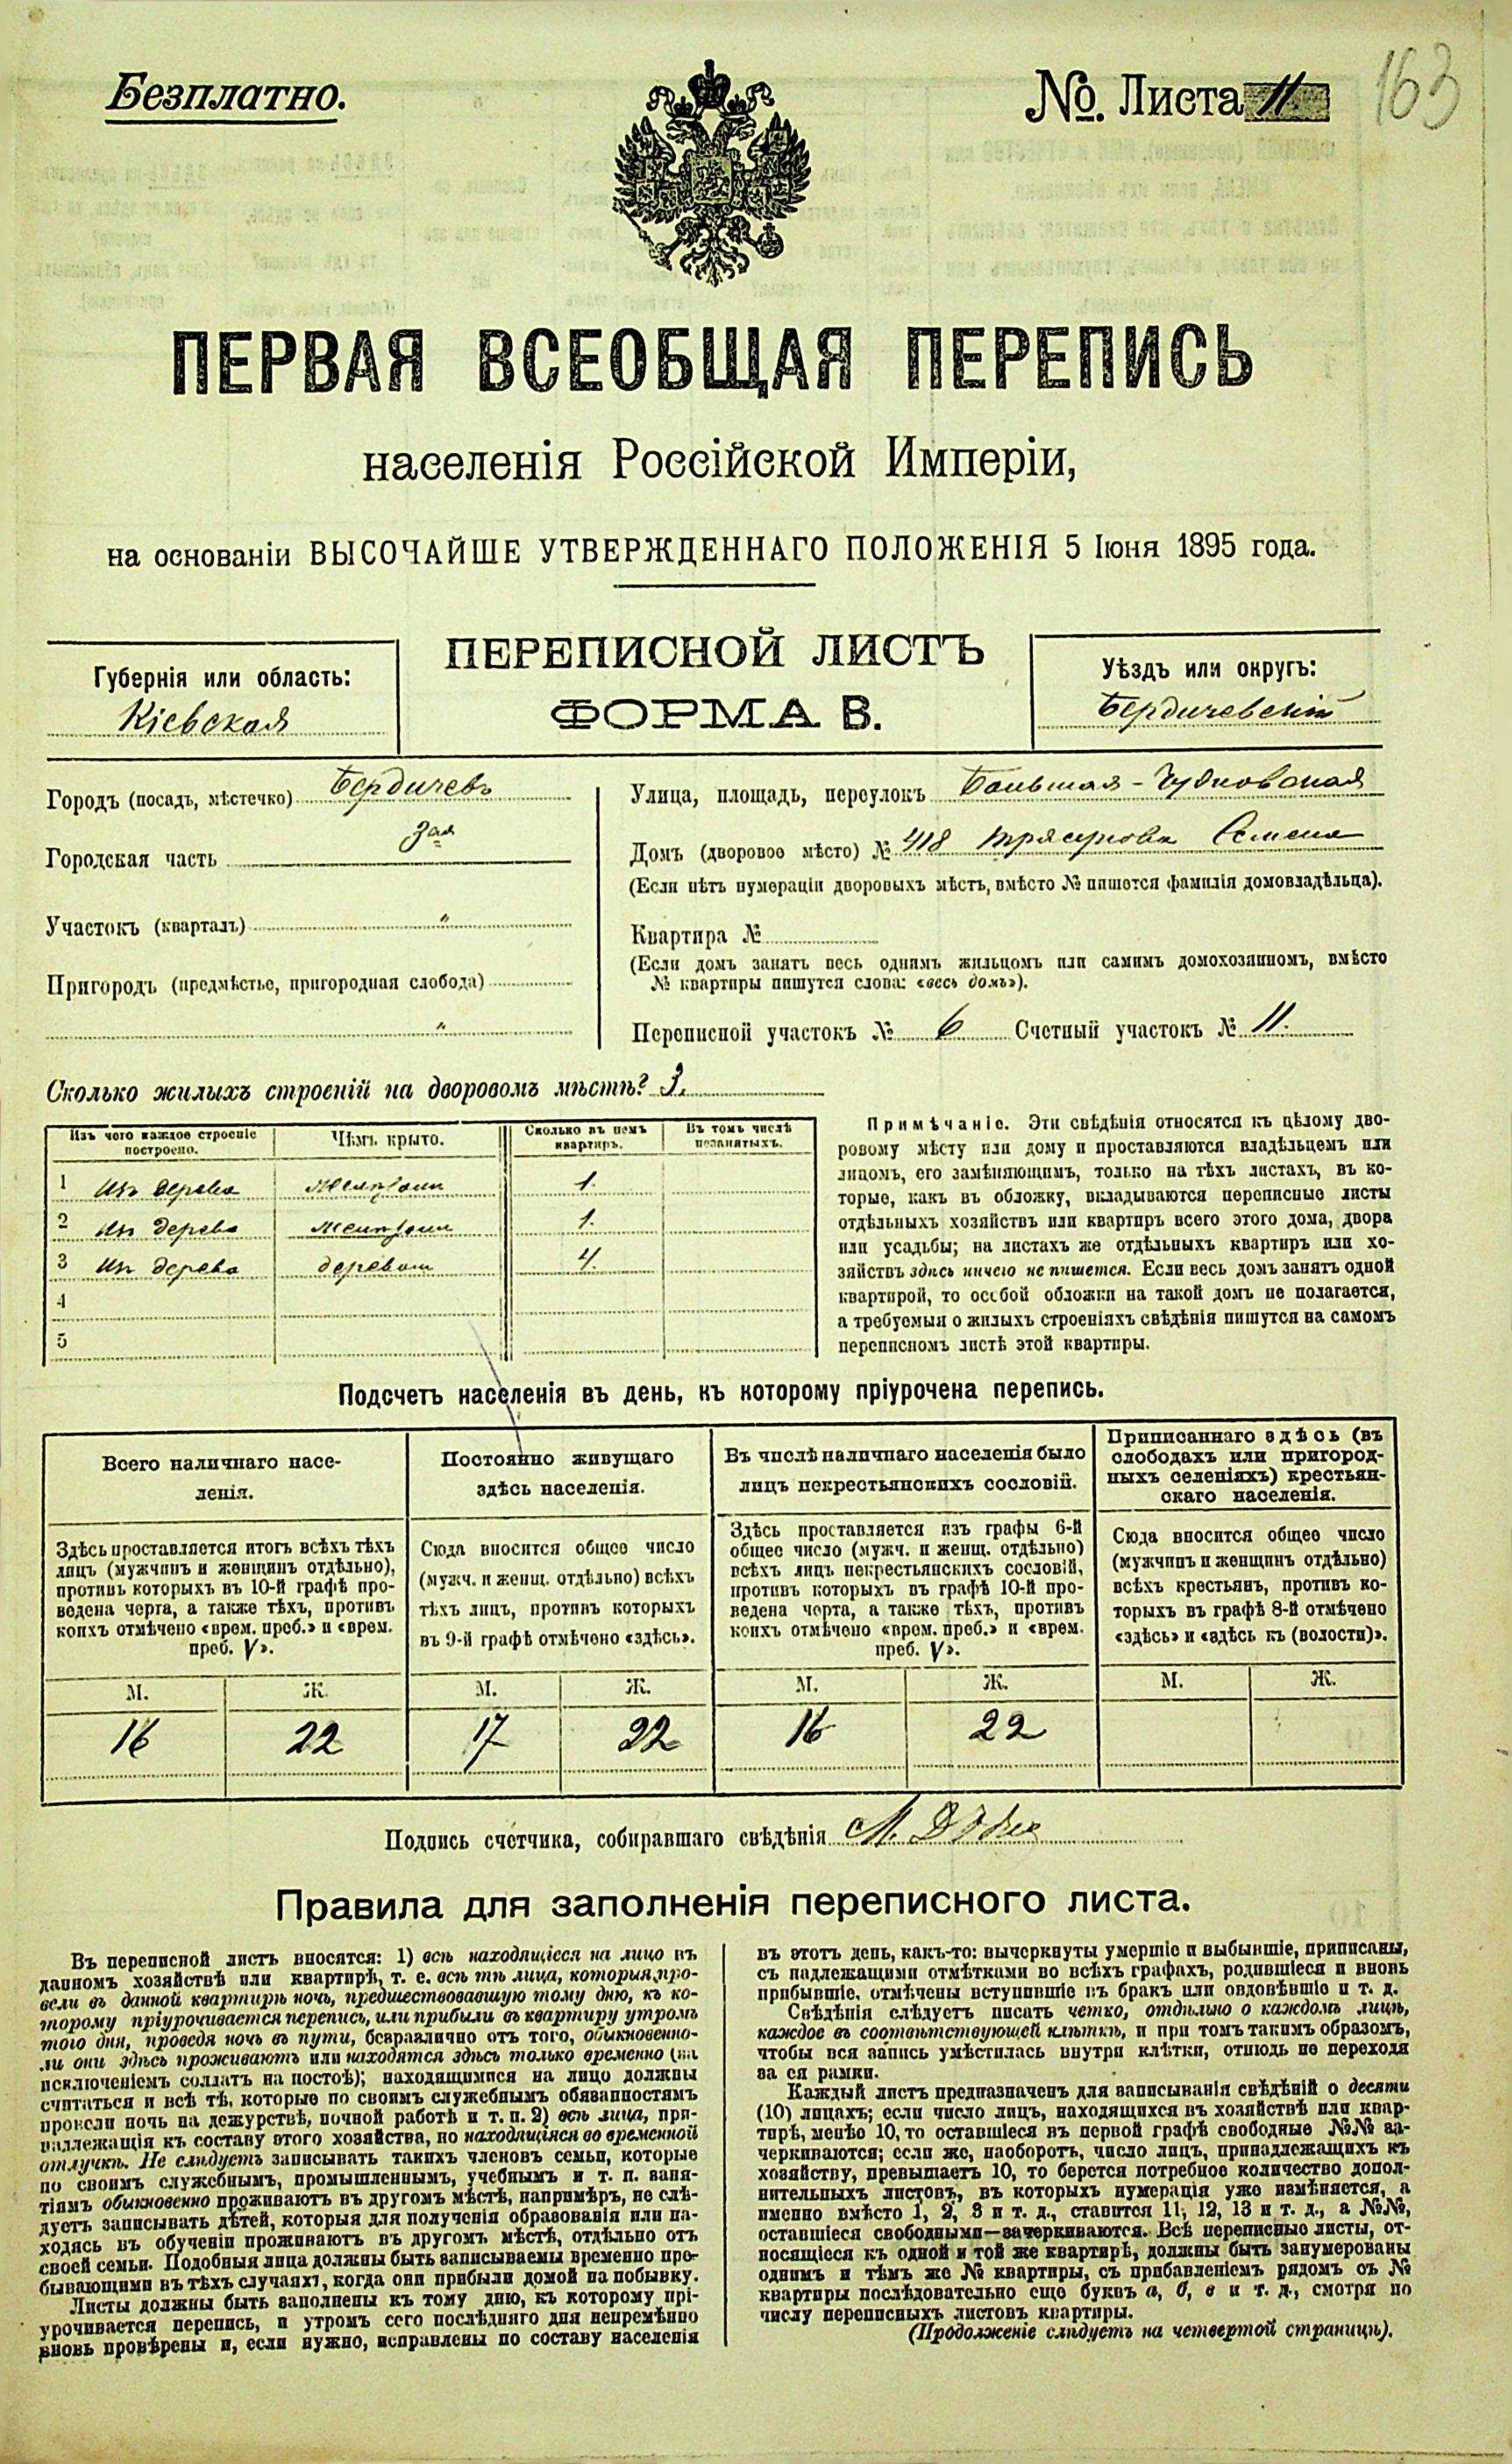 Безплатно.
№. Листа 11.
163
ПЕРВАЯ ВСЕОБЩАЯ ПЕРЕПИСЬ
населенія Россійской Имперіи,
на основаніи ВЫСОЧАЙШЕ УТВЕРЖДЕННАГО ПОЛОЖЕНІЯ 5 Іюня 1895 года.
ПЕРЕПИСНОЙ ЛИСТЪ
ФОРМА В.
Губернія или область:
Кіевская
Уѣздъ или округъ:
Бердичевскій
Городъ (посадъ, мѣстечко) Бердичевъ
Городская часть 3ая
Участокъ (кварталъ) "
Пригородъ (предмѣстье, пригородная слобода)
"
Улица, площадь, переулокъ Большая-Чудновская
Домъ (дворовое мѣсто) № 418 Семена
(Если нѣтъ нумераціи дворовыхъ мѣстъ, вмѣсто № пишется фамилія домовладѣльца).
Квартира №
(Если домъ занятъ весь однимъ жильцомъ или самимъ домохозяиномъ, вмѣсто
№ квартиры пишутся слова: «весь домъ»).
Переписной участокъ № 6 Счетный участокъ № 11.
Сколько жилыхъ строеній на дворовомъ мѣстѣ? 3.
Изъ чего каждое строеніе построено. Чѣмъ крыто. Сколько въ немъ квартиръ. Въ томъ числѣ незанятыхъ.
1 Изъ дерева 1.
2 Изъ дерева 1.
3 Изъ дерева деревом 4.
4
5
Примѣчаніе. Эти свѣдѣнія относятся къ цѣлому дво-
ровому мѣсту или дому и проставляются владѣльцемъ или
лицомъ, его замѣняющимъ, только на тѣхъ листахъ, въ ко-
торые, какъ въ обложку, вкладываются переписные листы
отдѣльныхъ хозяйствъ или квартиръ всего этого дома, двора
или усадьбы; на листахъ же отдѣльныхъ квартиръ или хо-
зяйствъ здѣсь ничего не пишется. Если весь домъ занятъ одной
квартирой, то особой обложки на такой домъ не полагается,
а требуемыя о жилыхъ строеніяхъ свѣдѣнія пишутся на самомъ
переписномъ листѣ этой квартиры.
Подсчетъ населенія въ день, къ которому пріурочена перепись.
Всего наличнаго насе-
ленія.
Здѣсь проставляется итогъ всѣхъ тѣхъ
лицъ (мужчинъ и женщинъ отдѣльно),
противъ которыхъ въ 10-й графѣ про-
ведена черта, а также тѣхъ, противъ
коихъ отмѣчено «врем. преб.» и «врем.
преб. V».
М. Ж.
16 22
Постоянно живущаго
здѣсь населенія.
Сюда вносится общее число
(мужч. и женщ. отдѣльно) всѣхъ
тѣхъ лицъ, противъ которыхъ
въ 9-й графѣ отмѣчено «здѣсь».
М. Ж.
17 22
Въ числѣ наличнаго населенія было
лицъ некрестьянскихъ сословій.
Здѣсь проставляется изъ графы 6-й
общее число (мужч. и женщ. отдѣльно)
всѣхъ лицъ некрестьянскихъ сословій,
противъ которыхъ въ графѣ 10-й про-
ведена черта, а также тѣхъ, противъ
коихъ отмѣчено «врем. преб.» и «врем.
преб. V».
М. Ж.
16 22
Приписаннаго здѣсь (въ
слободахъ или пригород-
ныхъ селеніяхъ) крестьян-
скаго населенія.
Сюда вносится общее число
(мужчинъ и женщинъ отдѣльно)
всѣхъ крестьянъ, противъ ко-
торыхъ въ графѣ 8-й отмѣчено
«здѣсь» и «здѣсь къ (волости)».
М. Ж.
Подпись счетчика, собиравшаго свѣдѣнія М.
Правила для заполненія переписного листа.
Въ переписной листъ вносятся: 1) всѣ находящіеся на лицо въ
данномъ хозяйствѣ или квартирѣ, т. е. всѣ тѣ лица, которыя про-
вели въ данной квартирѣ ночь, предшествовавшую тому дню, къ ко-
торому пріурочивается перепись, или прибыли въ квартиру утромъ
того дня, проведя ночь въ пути, безразлично отъ того, обыкновенно-
ли они здѣсь проживаютъ или находятся здѣсь только временно (за
исключеніемъ солдатъ на постоѣ); находящимися на лицо должны
считаться и всѣ тѣ, которые по своимъ служебнымъ обязанностямъ
провели ночь на дежурствѣ, ночной работѣ и т. п. 2) всѣ лица, при-
надлежащія къ составу этого хозяйства, но находящіяся во временной
отлучкѣ. Не слѣдуетъ записывать такихъ членовъ семьи, которые
по своимъ служебнымъ, промышленнымъ, учебнымъ и т. п. заня-
тіямъ обыкновенно проживаютъ въ другомъ мѣстѣ, напримѣръ, не слѣ-
дуетъ записывать дѣтей, которыя для полученія образованія или на-
ходясь въ обученіи проживаютъ въ другомъ мѣстѣ, отдѣльно отъ
своей семьи. Подобныя лица должны быть записываемы временно пре-
бывающими въ тѣхъ случаяхъ, когда они прибыли домой на побывку.
Листы должны быть заполнены къ тому дню, къ которому прі-
урочивается перепись, и утромъ сего послѣдняго дня непремѣнно
вновь провѣрены и, если нужно, исправлены по составу населенія
въ этотъ день, какъ-то: вычеркнуты умершіе и выбывшіе, приписаны,
съ надлежащими отмѣтками во всѣхъ графахъ, родившіеся и вновь
прибывшіе, отмѣчены вступившіе въ бракъ или овдовѣвшіе и т. д.
Свѣдѣнія слѣдуетъ писать четко, отдѣльно о каждомъ лицѣ,
каждое въ соотвѣтствующей клѣткѣ, и при томъ такимъ образомъ,
чтобы вся запись умѣстилась внутри клѣтки, отнюдь не переходя
за ея рамки.
Каждый листъ предназначенъ для записыванія свѣдѣній о десяти
(10) лицахъ; если число лицъ, находящихся въ хозяйствѣ или квар-
тирѣ, менѣе 10, то оставшіеся въ первой графѣ свободные №№ за-
черкиваются; если же, наоборотъ, число лицъ, принадлежащихъ къ
хозяйству, превышаетъ 10, то берется потребное количество допол-
нительныхъ листовъ, въ которыхъ нумерація уже измѣняется, а
именно вмѣсто 1, 2, 3 и т. д., ставится 11, 12, 13 и т. д., а №№,
оставшіеся свободными—зачеркиваются. Всѣ переписные листы, от-
носящіеся къ одной и той же квартирѣ, должны быть занумерованы
однимъ и тѣмъ же № квартиры, съ прибавленіемъ рядомъ съ №
квартиры послѣдовательно еще буквъ а, б, в и т. д., смотря по
числу переписныхъ листовъ квартиры.
(Продолженіе слѣдуетъ на четвертой страницѣ).